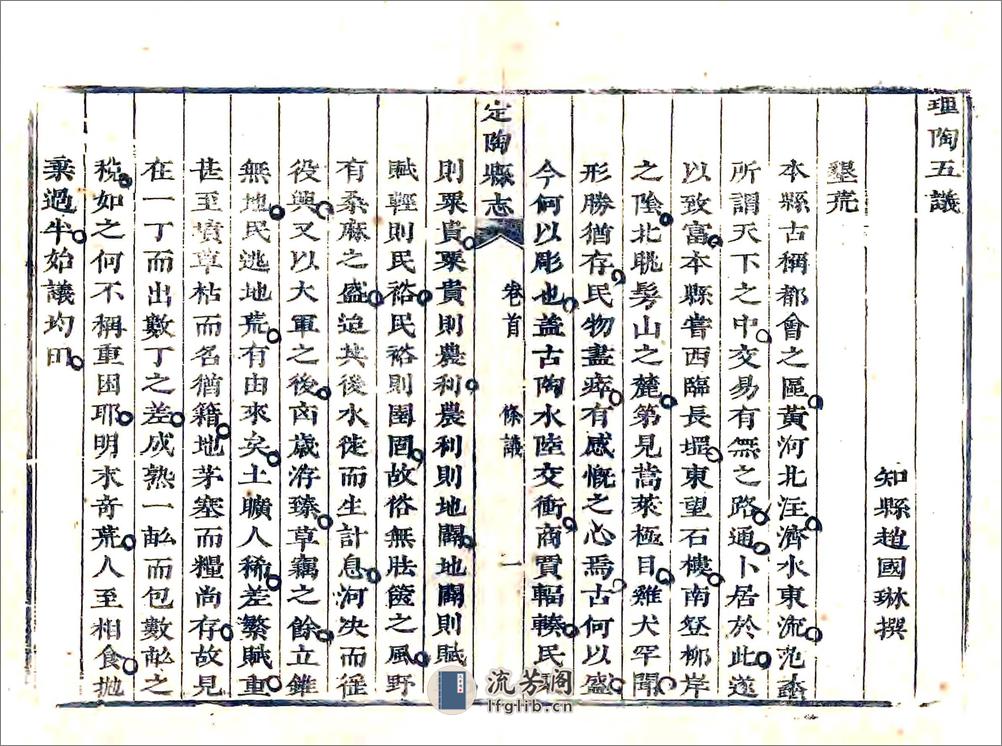 理陶五議
知縣趙國琳撰
墾荒
本縣古稱都會之區黃河北注濟水東流范蠡
所謂天下之中交易有無之路通卜居於此遂
以致富本縣嘗西臨長堽東望石樓南登柳岸
之陰北眺髣山之麓第見蒿萊極目雞犬罕聞
形勝猶存民物盡瘁有感慨之心焉古何以盛
今何以彫也葢古陶水陸交衝商賈輻輳民
則粟貴粟貴則農利農利則地闢地闢則賦
賦輕則民裕民裕則圉固故俗無胠篋之風野
有桑麻之盛迨其後水徙而生計息河決而徭
役興又以大軍之後凶歲洊臻草竊之餘立錐
無地民逃地荒有由來矣土曠人稀差繁賦重
甚至墳草枯而名猶籍地茅塞而糧尚存故見
在一丁而出數丁之差成熟一畝而包數畝之
稅如之何不稱重困耶明末奇荒人至相食拋
棄過半始議均田
定陶縣志
卷首
條議
一
流芳閣
lfglib.cn